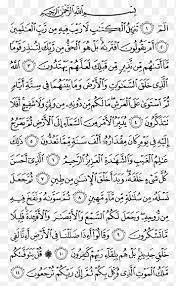 بِسْمِ ٱللَّهِ ٱلرَّحْمَٰنِ ٱلرَّحِيمِ
الٓمٓ ١ تَنزِيلُ ٱلْكِتَٰبِ لَا رَيْبَ فِيهِ مِن رَّبِّ ٱلْعَٰلَمِينَ ٢
أَمْ يَقُولُونَ ٱفْتَرَىٰهُ بَلْ هُوَ ٱلْحَقُّ مِن رَّبِّكَ لِتُنذِرَ قَوْمًا
مَّآ أَتَىٰهُم مِّن نَّذِيرٍ مِّن قَبْلِكَ لَعَلَّهُمْ يَهْتَدُونَ ٣ ٱللَّهُ
ٱلَّذِى خَلَقَ ٱلسَّمَٰوَٰتِ وَٱلْأَرْضَ وَمَا بَيْنَهُمَا فِى سِتَّةِ أَيَّامٍ
ثُمَّ ٱسْتَوَىٰ عَلَى ٱلْعَرْشِ مَا لَكُم مِّن دُونِهِۦ مِن وَلِىٍّ وَلَا شَفِيعٍ أَفَلَا
تَتَذَكَّرُونَ ٤ يُدَبِّرُ ٱلْأَمْرَ مِنَ ٱلسَّمَآءِ إِلَى ٱلْأَرْضِ ثُمَّ يَعْرُجُ
إِلَيْهِ فِى يَوْمٍ كَانَ مِقْدَارُهُۥٓ أَلْفَ سَنَةٍ مِّمَّا تَعُدُّونَ ٥ ذَٰلِكَ
عَٰلِمُ ٱلْغَيْبِ وَٱلشَّهَٰدَةِ ٱلْعَزِيزُ ٱلرَّحِيمُ ٦ ٱلَّذِىٓ أَحْسَنَ
كُلَّ شَىْءٍ خَلَقَهُۥ وَبَدَأَ خَلْقَ ٱلْإِنسَٰنِ مِن طِينٍ ٧ ثُمَّ جَعَلَ
نَسْلَهُۥ مِن سُلَٰلَةٍ مِّن مَّآءٍ مَّهِينٍ ٨ ثُمَّ سَوَّىٰهُ وَنَفَخَ فِيهِ
مِن رُّوحِهِۦ وَجَعَلَ لَكُمُ ٱلسَّمْعَ وَٱلْأَبْصَٰرَ وَٱلْأَفْـِٔدَةَ قَلِيلًا
مَّا تَشْكُرُونَ ٩ وَقَالُوٓا۟ أَءِذَا ضَلَلْنَا فِى ٱلْأَرْضِ أَءِنَّا لَفِى
خَلْقٍ جَدِيدٍ بَلْ هُم بِلِقَآءِ رَبِّهِمْ كَٰفِرُونَ ١٠ ۞ قُلْ يَتَوَفَّىٰكُم
مَّلَكُ ٱلْمَوْتِ ٱلَّذِى وُكِّلَ بِكُمْ ثُمَّ إِلَىٰ رَبِّكُمْ تُرْجَعُونَ ١١